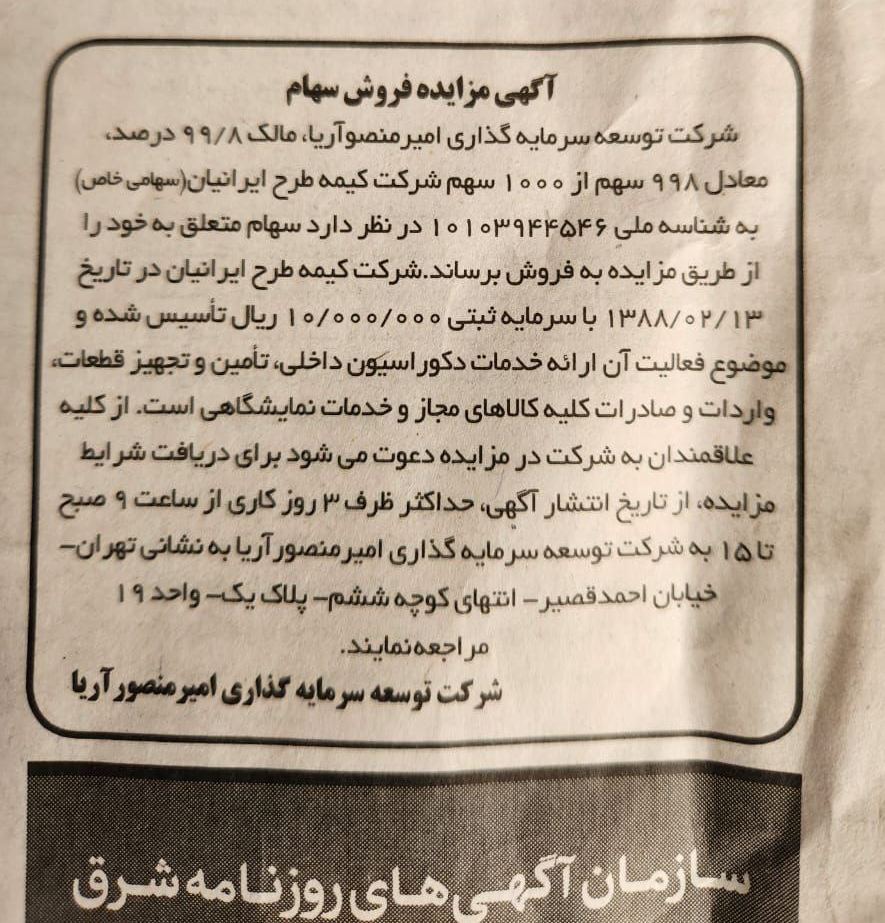 آگهی مزایده فروش سهام
شرکت توسعه سرمایه گذاری امیرمنصوآریا، مالک ۹۹/۸ درصد،
معادل ۹۹۸ سهم از ۱۰۰۰ سهم شرکت کیمه طرح ایرانیان(سهامی خاص)
به شناسه ملی ۱۰۱۰۳۹۴۴۵۴۶ در نظر دارد سهام متعلق به خود را
از طریق مزایده به فروش برساند.شرکت کیمه طرح ایرانیان در تاریخ
۱۳۸۸/۰۲/۱۳ با سرمایه ثبتی ۱۰/۰۰۰/۰۰۰ ریال تأسیس شده و
موضوع فعالیت آن ارائه خدمات دکوراسیون داخلی، تأمین و تجهیز قطعات،
واردات و صادرات کلیه کالاهای مجاز و خدمات نمایشگاهی است. از کلیه
علاقمندان به شرکت در مزایده دعوت می شود برای دریافت شرایط
مزایده، از تاریخ انتشار آگهی، حداکثر ظرف ۳ روز کاری از ساعت ۹ صبح
تا ۱۵ به شرکت توسعه سرمایه گذاری امیرمنصورآریا به نشانی تهران-
خیابان احمدقصیر- انتهای کوچه ششم- پلاک یک- واحد ۱۹
مراجعه نمایند.
شرکت توسعه سرمایه گذاری امیرمنصورآریا
سازمان آگهی های روزنامه شرق